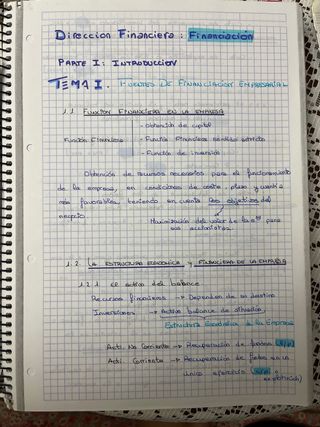 Dirección Financiera: Financiación
PARTE I: INTRODUCCIÓN
TEMA I. FUENTES DE FINANCIACIÓN EMPRESARIAL
1.1 FUNCIÓN FINANCIERA EN LA EMPRESA
- Obtención de capital
Función Financiera - Función Financiera sentido estricto
- Función de inversión
Obtención de recursos necesarios para el funcionamiento
de la empresa, en condiciones de coste, plazo y cuantía
más favorables, teniendo en cuenta los objetivos del
negocio.
Maximización del valor de la eª para
sus accionistas.
1.2. LA ESTRUCTURA ECONÓMICA Y FINANCIERA DE LA EMPRESA
1.2.1 El activo del balance
Recursos financieros → Dependen de su destino
Inversiones → Activo balance de situación.
Estructura Económica de la Empresa
Acti. No Corriente → Recuperación de fondos
Acti. Corriente → Recuperación de fondos en un
único ejercicio